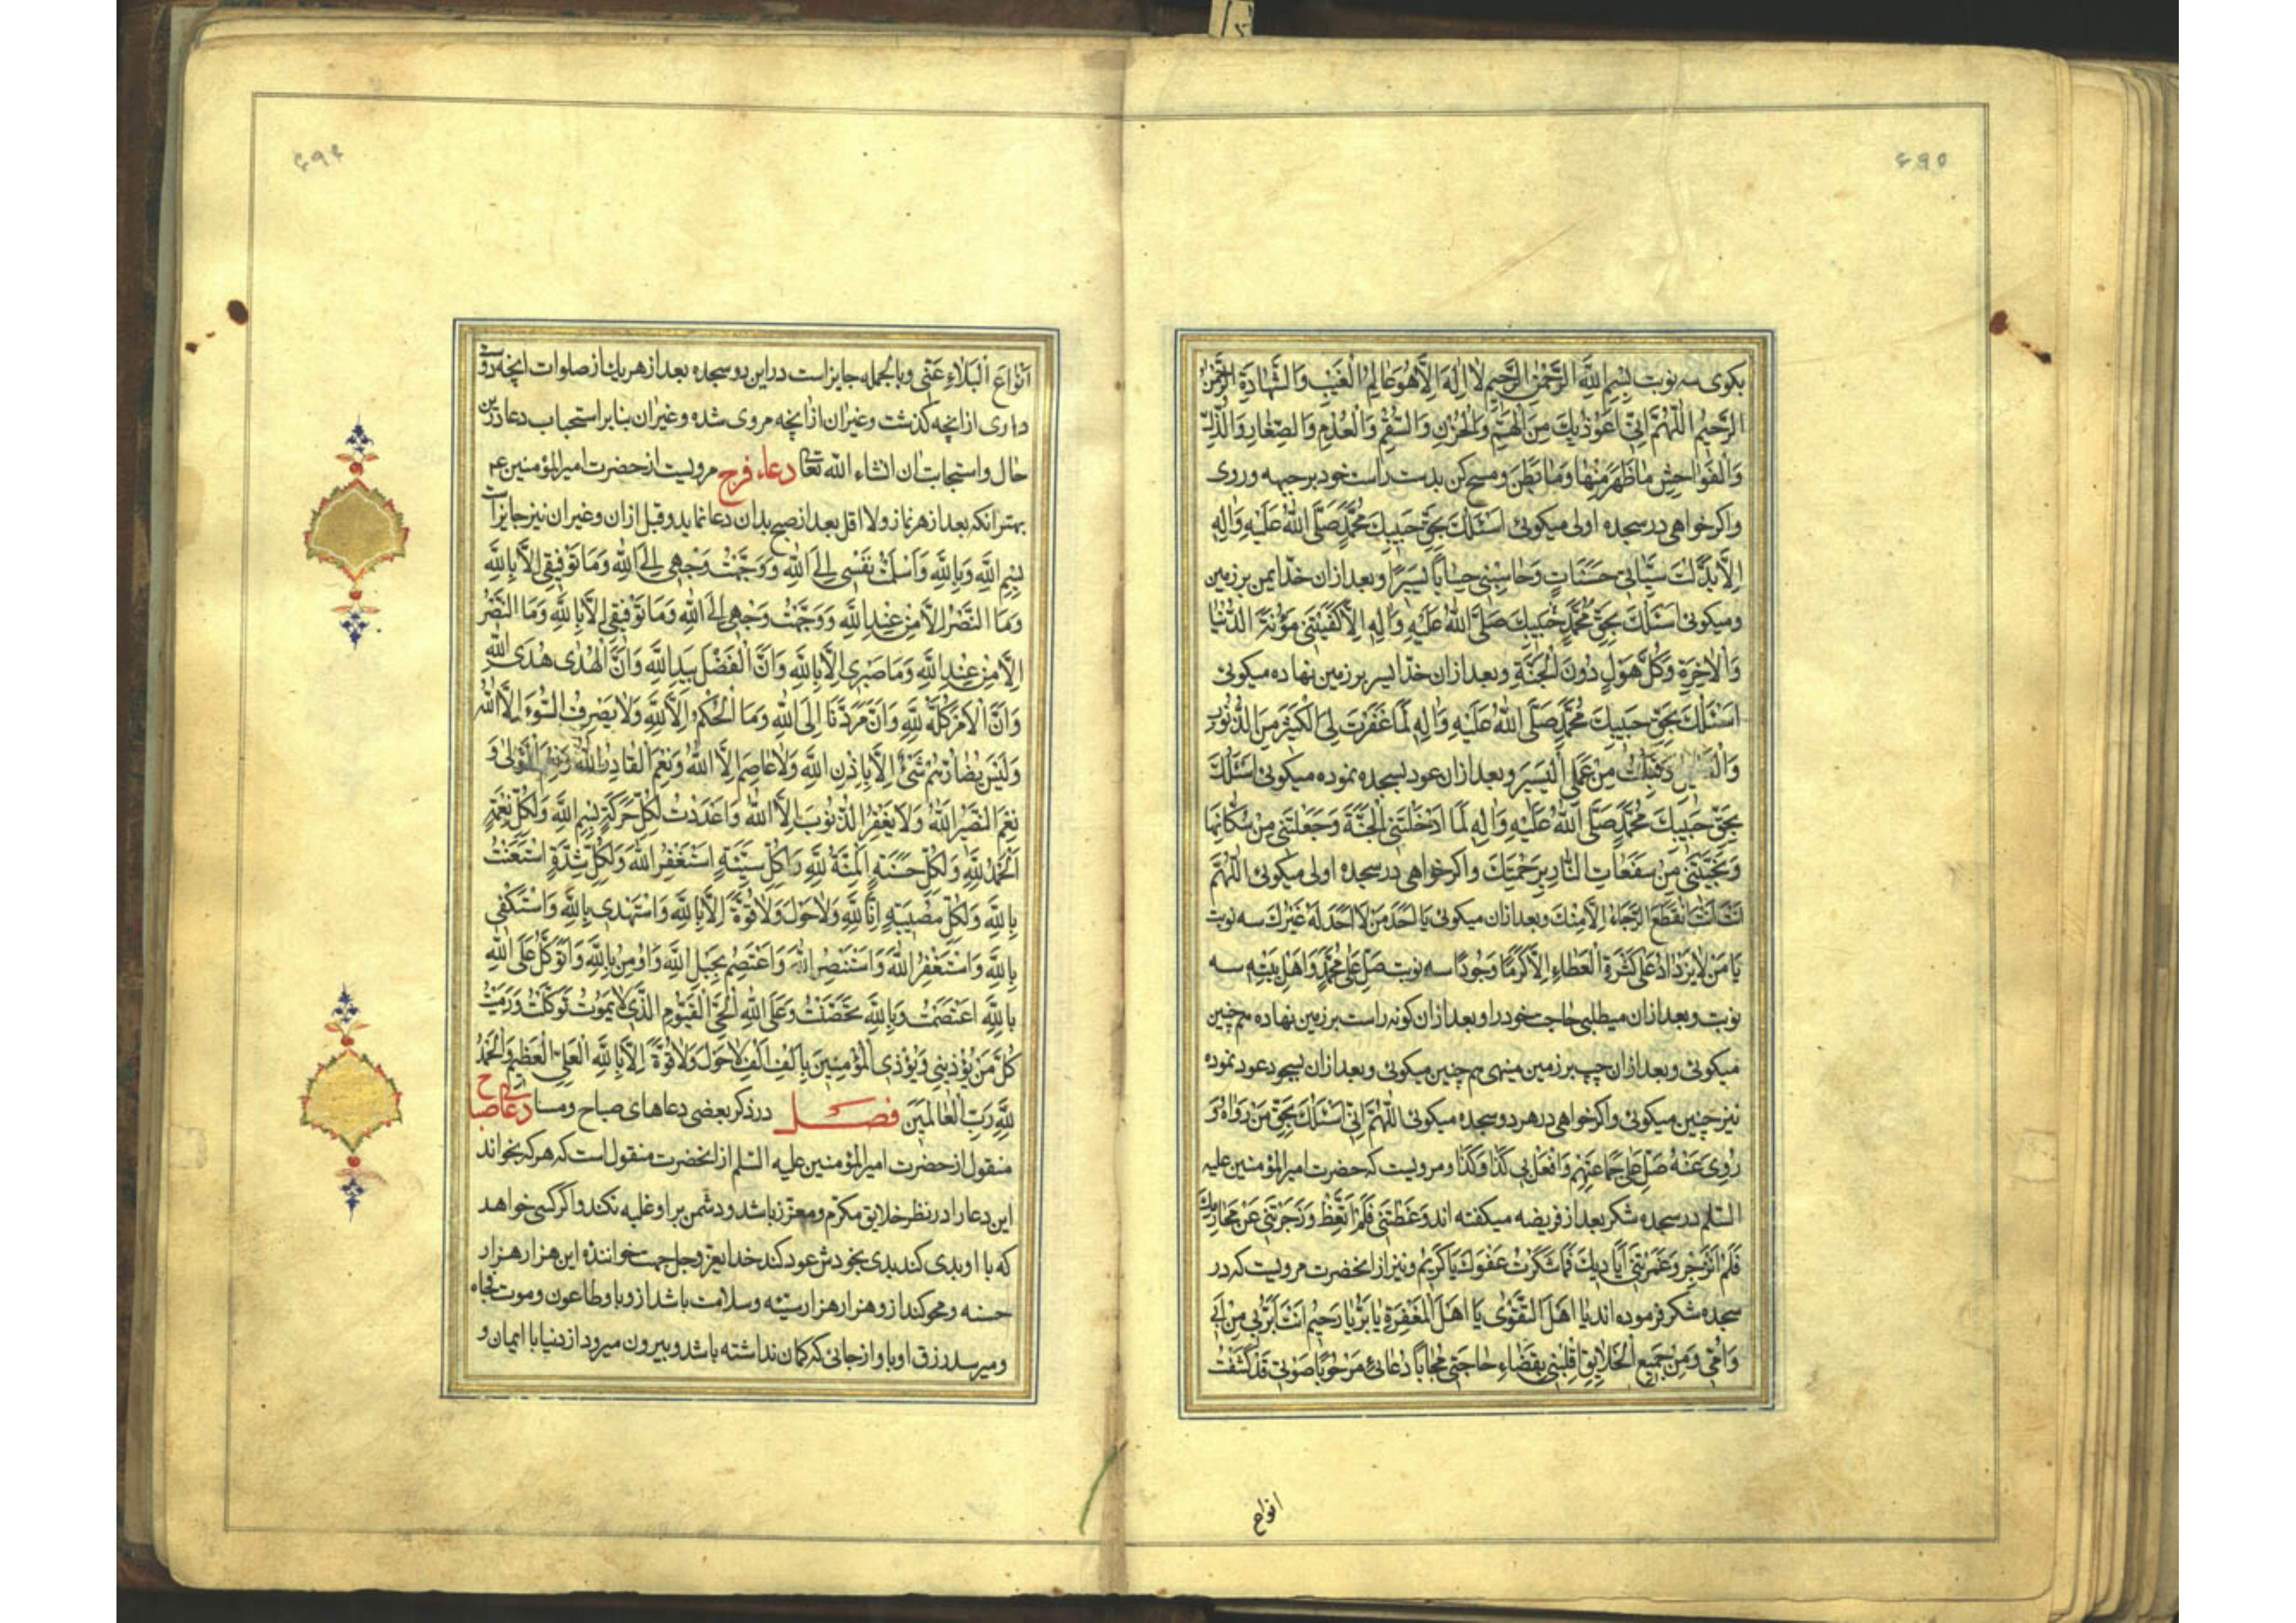 ۴۹۵
بکوی سه نوبت بِسْمِ اللّٰهِ الرَّحْمٰنِ الرَّحِیْمِ لَا اِلٰهَ اِلَّا هُوَ عَالِمُ الْغَیْبِ وَالشَّهَادَةِ الرَّحْمٰنُ
الرَّحِیْمُ اَللّٰهُمَّ اِنِّی اَعُوْذُ بِكَ مِنَ الْهَمِّ وَالْحُزْنِ وَالسُّقْمِ وَالْعُدْمِ وَالصِّغَارِ وَالذُّلِّ
وَالْفَوَاحِشِ مَا ظَهَرَ مِنْهَا وَمَا بَطَنَ ومسح کن بدست راست خود بر جبهه و روی
واکر خواهی در سجده اولی میکوئی اَسْئَلُكَ بِحَقِّ حَبِیْبِكَ مُحَمَّدٍ صَلَّی اللّٰهُ عَلَیْهِ وَاٰلِهِ
اِلَّا بَدَّلْتَ سَیِّئَاتِی حَسَنَاتٍ وَحَاسِبْنِی حِسَابًا یَسِیْرًا وبعد از ان خدّ ایمن بر زمین
ومیکوئی اَسْئَلُكَ بِحَقِّ مُحَمَّدٍ حَبِیْبِكَ صَلَّی اللّٰهُ عَلَیْهِ وَاٰلِهِ اِلَّا كَفَیْتَنِی مَؤُنَةَ الدُّنْیَا
وَالْاٰخِرَةِ وَكُلَّ هَوْلٍ دُوْنَ الْجَنَّةِ وبعد از ان خدّ ایسر بر زمین نهاده میکوئی
اَسْئَلُكَ بِحَقِّ حَبِیْبِكَ مُحَمَّدٍ صَلَّی اللّٰهُ عَلَیْهِ وَاٰلِهِ لَمَّا غَفَرْتَ لِیَ الْكَثِیْرَ مِنَ الذُّنُوْبِ
مِنْ عَمَلِی الْیَسِیْرَ وبعد از ان عود بسجده نموده میکوئی اَسْئَلُكَ
بِحَقِّ حَبِیْبِكَ مُحَمَّدٍ صَلَّی اللّٰهُ عَلَیْهِ وَاٰلِهِ لَمَّا اَدْخَلْتَنِی الْجَنَّةَ وَجَعَلْتَنِی مِنْ سُكَّانِهَا
وَنَجَّیْتَنِی مِنْ سَفَعَاتِ النَّارِ بِرَحْمَتِكَ واکر خواهی در سجده اولی میکوئی اَللّٰهُمَّ
اَنْتَ اَنْتَ اِنْقَطَعَ الرَّجَاءُ اِلَّا مِنْكَ وبعد از ان میکوئی یَا اَحَدَ مَنْ لَا اَحَدَ لَهُ غَیْرُكَ سه نوبت
یَا مَنْ لَا یَزْدَادُ عَلٰی كَثْرَةِ الْعَطَاءِ اِلَّا كَرَمًا وَجُوْدًا سه نوبت صَلِّ عَلٰی مُحَمَّدٍ وَاَهْلِ بَیْتِهِ سه
نوبت وبعد از ان میطلبی حاجت خود را وبعد از ان کونه راست بر زمین نهاده هم چنین
میکوئی وبعد از ان چپ بر زمین مینهی هم چنین میکوئی وبعد از ان بسجود عود نموده
نیز چنین میکوئی واکر خواهی در هر دو سجده میکوئی اَللّٰهُمَّ اِنِّی اَسْئَلُكَ بِحَقِّ مَنْ رَوَاهُ وَ
رُوِیَ عَنْهُ صَلِّ عَلٰی جَمَاعَتِهِمْ وَافْعَلْ بِی كَذَا وَكَذَا ومرویست که حضرت امیرالمؤمنین علیه
السلم در سجده شکر بعد از فریضه میکفته اند وَعَظْتَنِی فَلَمْ اَتَّعِظْ وَزَجَرْتَنِی عَنْ مَحَارِمِكَ
فَلَمْ اَنْزَجِرْ وَغَمَرْتَنِی اَیَادِیْكَ فَمَا شَكَرْتُ عَفْوَكَ یَا كَرِیْمُ ونیز از انحضرت مرویست که در
سجده شکر فرموده اند یَا اَهْلَ التَّقْوٰی یَا اَهْلَ الْمَغْفِرَةِ یَا بَرُّ یَا رَحِیْمُ اَنْتَ اَبَرُّ بِی مِنْ اَبِی
وَاُمِّی وَمِنْ جَمِیْعِ الْخَلَائِقِ اِقْلِبْنِی بِقَضَاءِ حَاجَتِی مُجَابًا دُعَائِی مَرْحُوْمًا صَوْتِی قَدْ كَشَفْتَ
انواع
۴۹۴
اَنْوَاعَ الْبَلَاءِ عَنِّی وبالجمله جایز است در این دو سجده بعد از هریك از صلوات انچه دوست
داری از انچه کذشت وغیر ان از انچه مروی شده وغیر ان بنابر استحباب دعا در این
حال واستجابت ان انشاء اللّٰه تعا دعاء فرج مرویست از حضرت امیرالمؤمنین ع
بهتر انکه بعد از هر نماز ولا اقل بعد از صبح بدان دعا نماید وقبل از ان وغیر ان نیز جایز است
بِسْمِ اللّٰهِ وَبِاللّٰهِ وَاَسْلَمْتُ نَفْسِی اِلَی اللّٰهِ وَوَجَّهْتُ وَجْهِی اِلَی اللّٰهِ وَمَا تَوْفِیْقِی اِلَّا بِاللّٰهِ
وَمَا النَّصْرُ اِلَّا مِنْ عِنْدِ اللّٰهِ وَوَجَّهْتُ وَجْهِی اِلَی اللّٰهِ وَمَا تَوْفِیْقِی اِلَّا بِاللّٰهِ وَمَا النَّصْرُ
اِلَّا مِنْ عِنْدِ اللّٰهِ وَمَا صَبْرِی اِلَّا بِاللّٰهِ وَاَنَّ الْفَضْلَ بِیَدِ اللّٰهِ وَاَنَّ الْهُدٰی هُدَی اللّٰهِ
وَاَنَّ الْاَمْرَ كُلَّهُ لِلّٰهِ وَاَنَّ مَرَدَّنَا اِلَی اللّٰهِ وَمَا الْحُكْمُ اِلَّا لِلّٰهِ وَلَا یَصْرِفُ السُّوْءَ اِلَّا اللّٰهُ
وَلَیْسَ بِضَارِّهِمْ شَیْئًا اِلَّا بِاِذْنِ اللّٰهِ وَلَا عَاصِمَ اِلَّا اللّٰهُ وَنِعْمَ الْقَادِرُ اللّٰهُ وَنِعْمَ الْمَوْلٰی وَ
نِعْمَ النَّصِیْرُ اللّٰهُ وَلَا یَغْفِرُ الذُّنُوْبَ اِلَّا اللّٰهُ وَاَعْدَدْتُ لِكُلِّ حَرَكَةٍ بِسْمِ اللّٰهِ وَلِكُلِّ نِعْمَةٍ
اَلْحَمْدُ لِلّٰهِ وَلِكُلِّ حَسَنَةٍ اَلْمِنَّةُ لِلّٰهِ وَلِكُلِّ سَیِّئَةٍ اَسْتَغْفِرُ اللّٰهَ وَلِكُلِّ شِدَّةٍ اِسْتَعَنْتُ
بِاللّٰهِ وَلِكُلِّ مُصِیْبَةٍ اِنَّا لِلّٰهِ وَلَا حَوْلَ وَلَا قُوَّةَ اِلَّا بِاللّٰهِ وَاَسْتَهْدِی بِاللّٰهِ وَاَسْتَكْفِی
بِاللّٰهِ وَاَسْتَغْفِرُ اللّٰهَ وَاَسْتَنْصِرُ اللّٰهَ وَاَعْتَصِمُ بِحَبْلِ اللّٰهِ وَاُوْمِنُ بِاللّٰهِ وَاَتَوَكَّلُ عَلَی اللّٰهِ
بِاللّٰهِ اعْتَصَمْتُ وَبِاللّٰهِ تَحَصَّنْتُ وَعَلَی اللّٰهِ الْحَیِّ الْقَیُّوْمِ الَّذِی لَا یَمُوْتُ تَوَكَّلْتُ وَرَمَیْتُ
كُلَّ مَنْ یُؤْذِیْنِی وَیُؤْذِی الْمُؤْمِنِیْنَ بِاَلْفِ اَلْفِ لَا حَوْلَ وَلَا قُوَّةَ اِلَّا بِاللّٰهِ الْعَلِیِّ الْعَظِیْمِ وَالْحَمْدُ
لِلّٰهِ رَبِّ الْعَالَمِیْنَ فصل در ذکر بعضی دعاهای صباح ومسا دعای صباح
منقول از حضرت امیرالمؤمنین علیه السلم از انحضرت منقول است که هر که بخواند
این دعا را در نظر خلایق مکرّم ومعزّز باشد ودشمن بر او غلبه نکند واکر کسی خواهد
که با او بدی کند بدی بخودش عود کند خدایعزّ وجل جهت خواننده این هزار هزار
حسنه ومحو کند از و هزار هزار سیّئه وسلامت باشد از وبا وطاعون وموت فجاه
ومیرسد رزق او باو از جائی که کمان نداشته باشد وبیرون میرود از دنیا با ایمان و